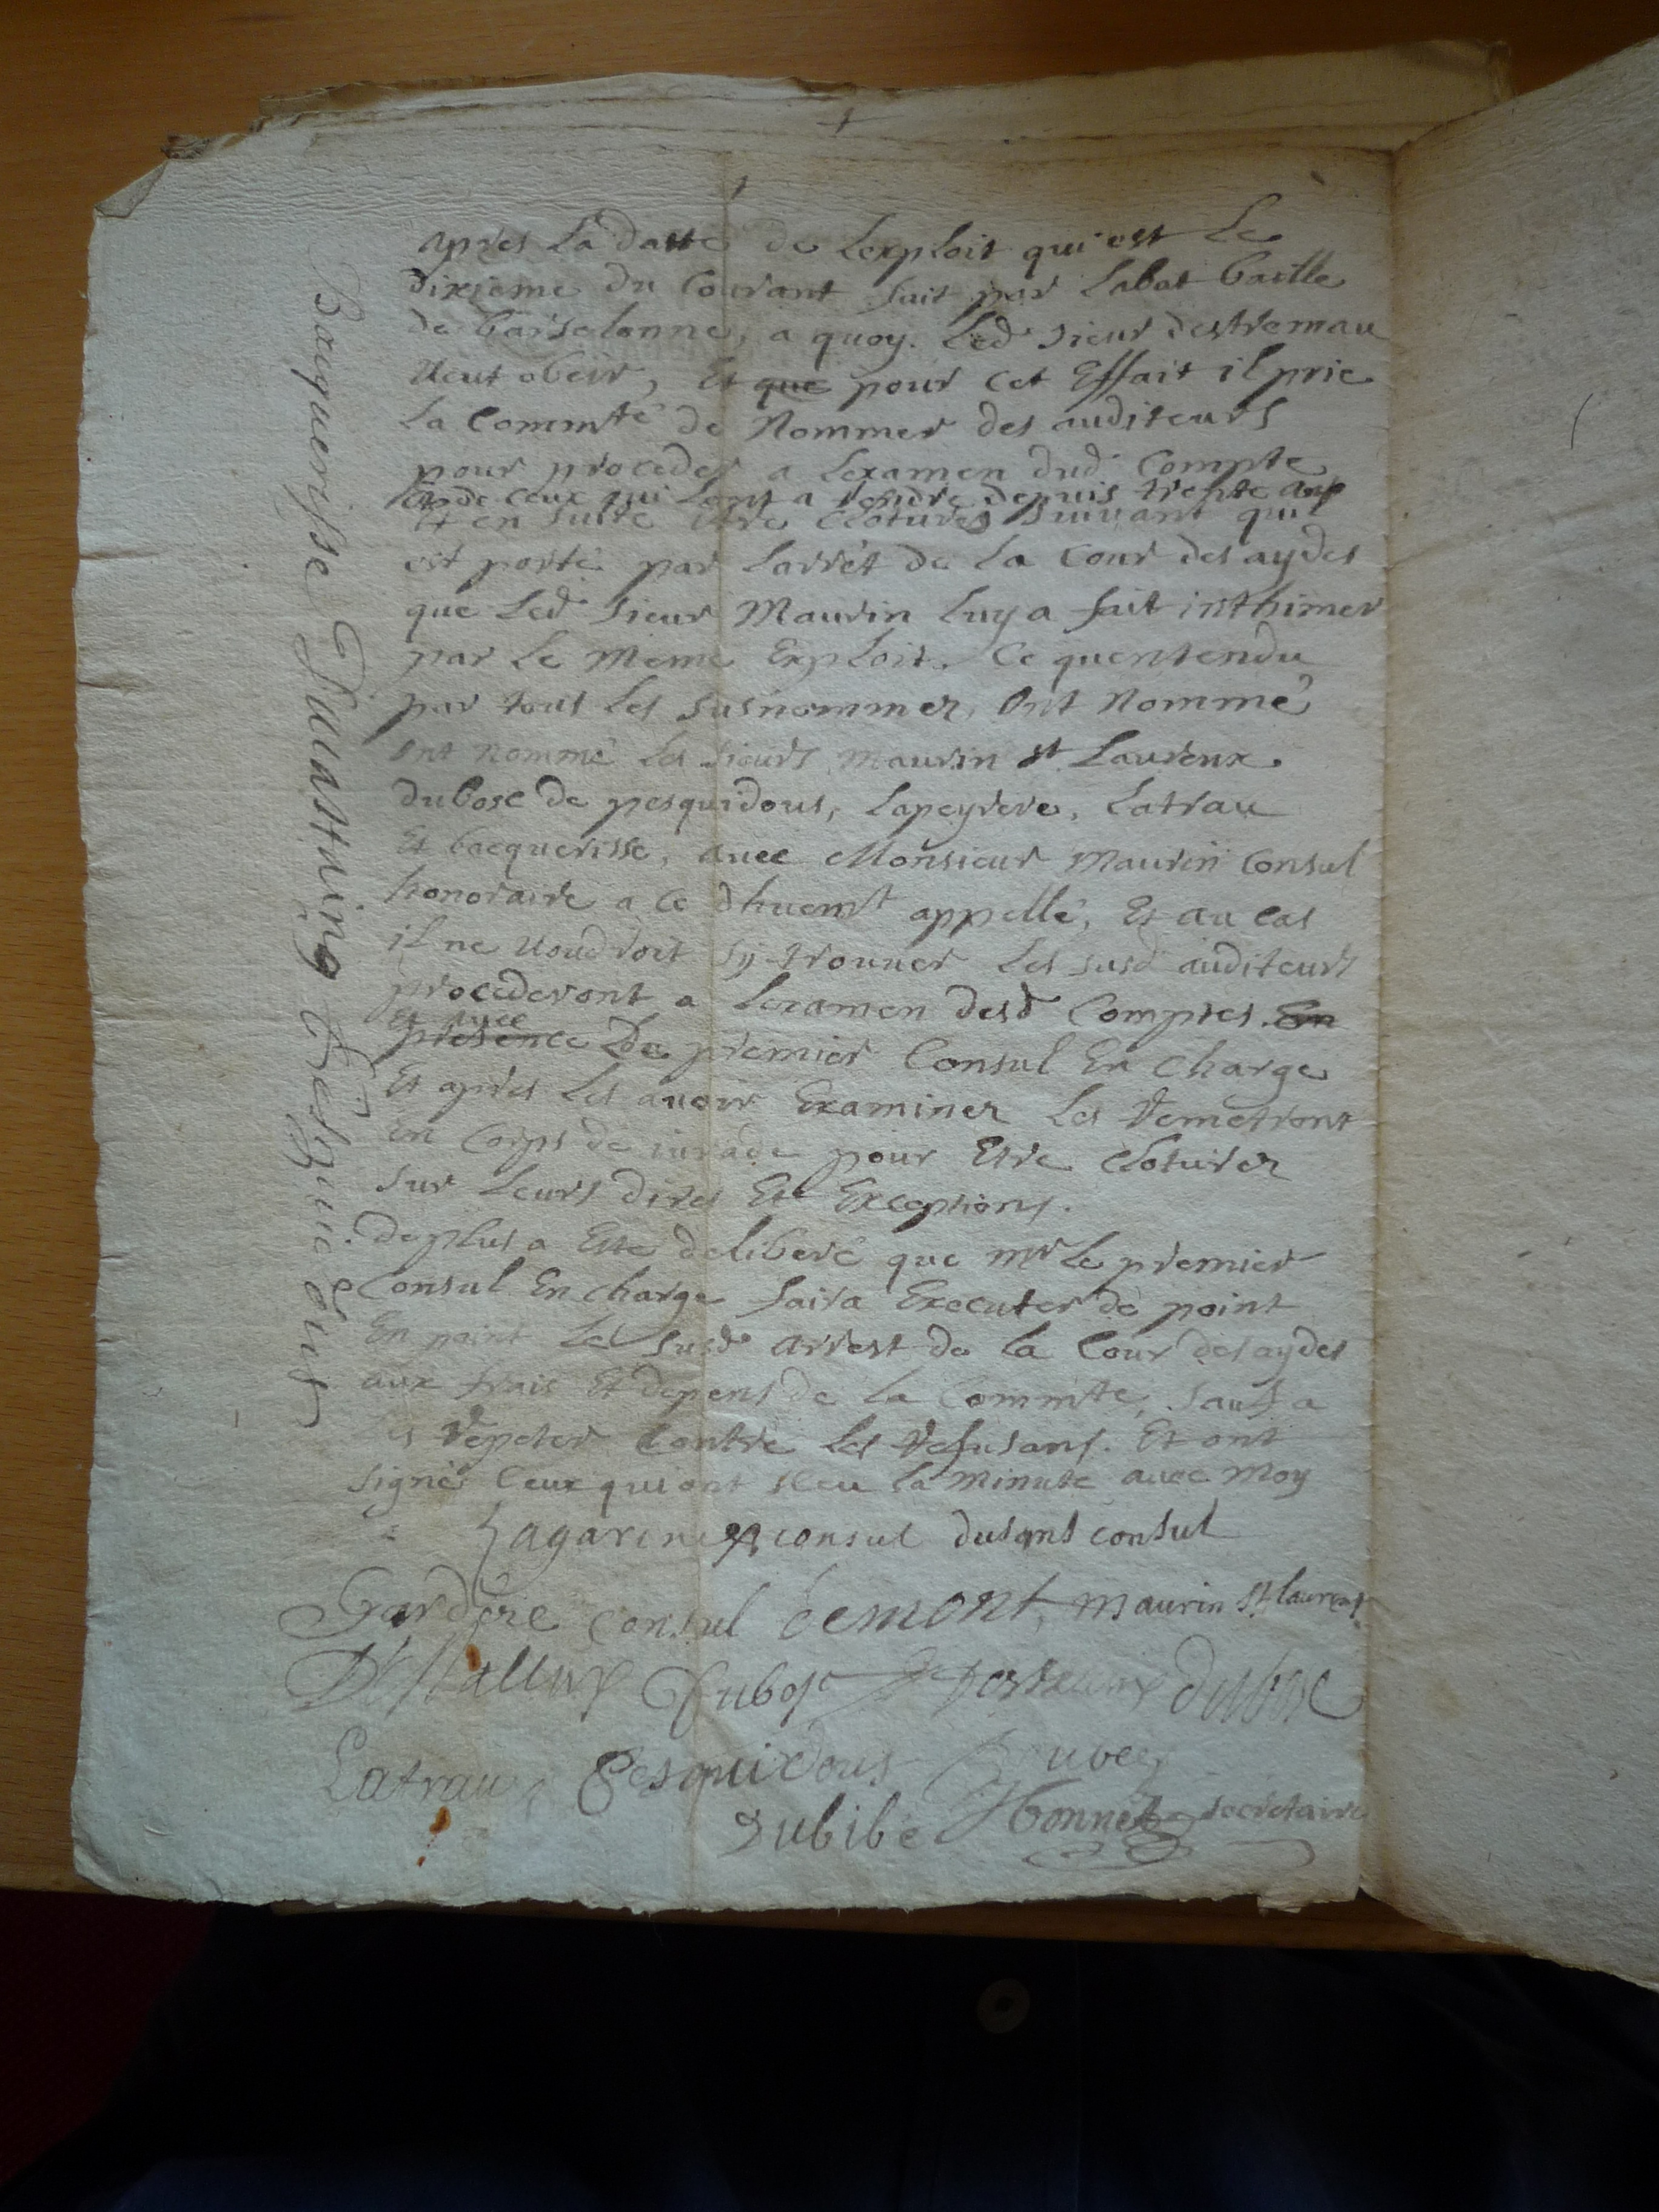 apres La datte de Lexploit qui est Le
dixieme du Courant fait par Labat baille
de barselonne, a quoy. Led sieur destremau
Veut obeir, Et que pour cet Effait il prie
La Commté de Nommer des auditeurs
pour proceder a Lexamen dud Compte
Et de ceux qui sont a rendre depuis trente ans
Et en suite Etre Cloturés suivant quil
est porté par Larrêt de La Cour des aydes
que Led sieur Maurin Luy a fait inthimer
par Le Meme Exploit. Ce quentendu
par tous Les susnommez, Ont Nommé
Ont Nommé Les sieurs Maurin st Laurenx
dubosc de pesquidous, Lapeyrere, Latrau
Et bacquerisse, avec Monsieur Maurin Consul
honoraire a ce dhuemt appellé, Et au Cas
il ne Voudroit sy trouver Les susd auditeurs
procederont a Lexamen desd Comptes. En
Et avec
presence Du premier Consul En Charge
Et apres Les avoir Examinez Les Remetront
En Corps de jurade pour Etre Cloturez
sur Leurs dires Et Exceptions.
De plus a Este deliberé que Mr Le premier
Consul En charge faira Executer de point
En point Le susd arrest de La Cour des aydes
aux frais Et depens de La Commte, sauf a
Les Repeter Contre Les Refusans. Et ont
signés Ceux qui ont sceu La Minute avec Moy
Lagarine consul dusans consul
Gardere Consul bemont, maurin st laurens
Dubosc dubosc
Latrau Pesquidous
dubibé Honnet secretaire
Bacquerisse